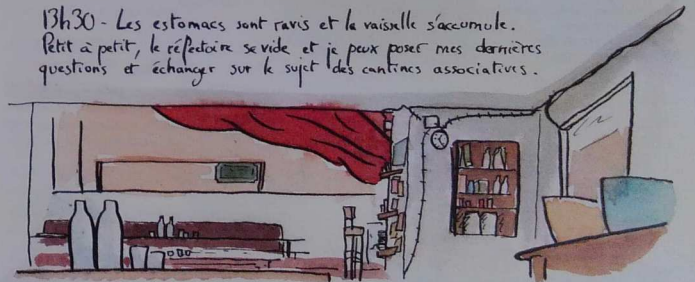 13h30 - Les estomacs sont ravis et la vaisselle s'accumule.
Petit à petit, le réfectoire se vide et je peux poser mes dernières
questions et échanger sur le sujet des cantines associatives.